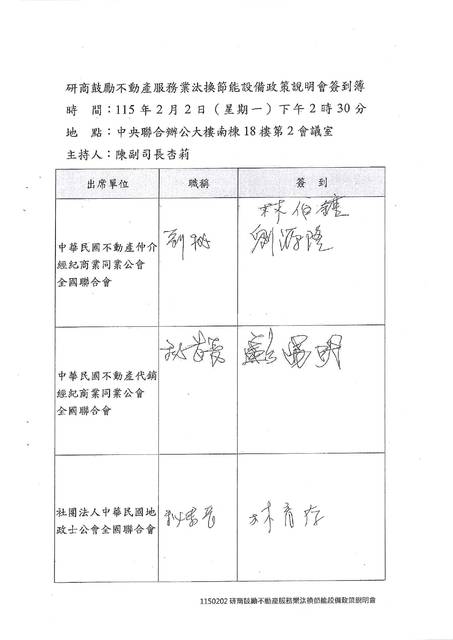 研商鼓勵不動產服務業汰換節能設備政策說明會簽到簿
時　間：115年2月2日（星期一）下午2時30分
地　點：中央聯合辦公大樓南棟18樓第2會議室
主持人：陳副司長杏莉
出席單位 職稱 簽到
中華民國不動產仲介
經紀商業同業公會
全國聯合會
林伯
劉
中華民國不動產代銷
經紀商業同業公會
全國聯合會
秘書長
明
社團法人中華民國地
政士公會全國聯合會
秘書長
林
1150202 研商鼓勵不動產服務業汰換節能設備政策說明會